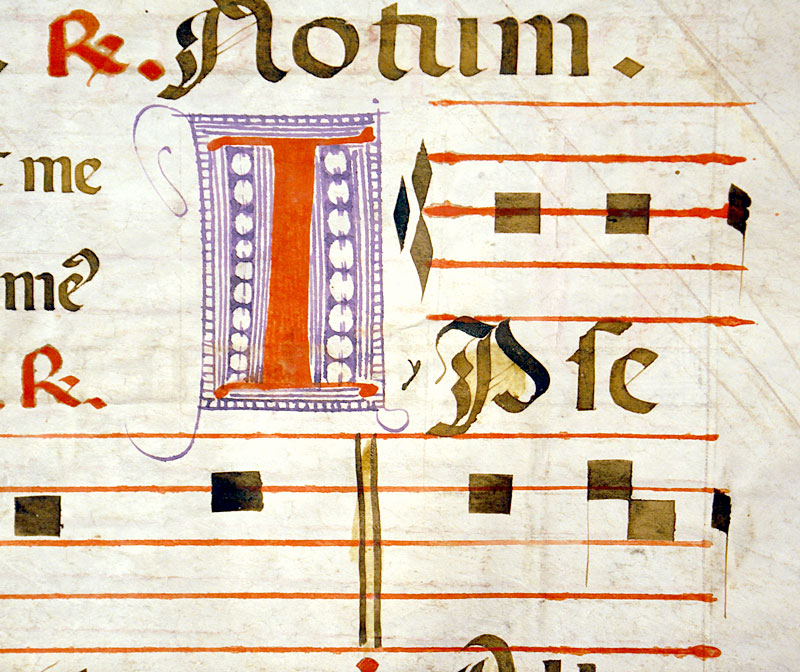 ℟. Notum.
me
me
I Pse
℟.